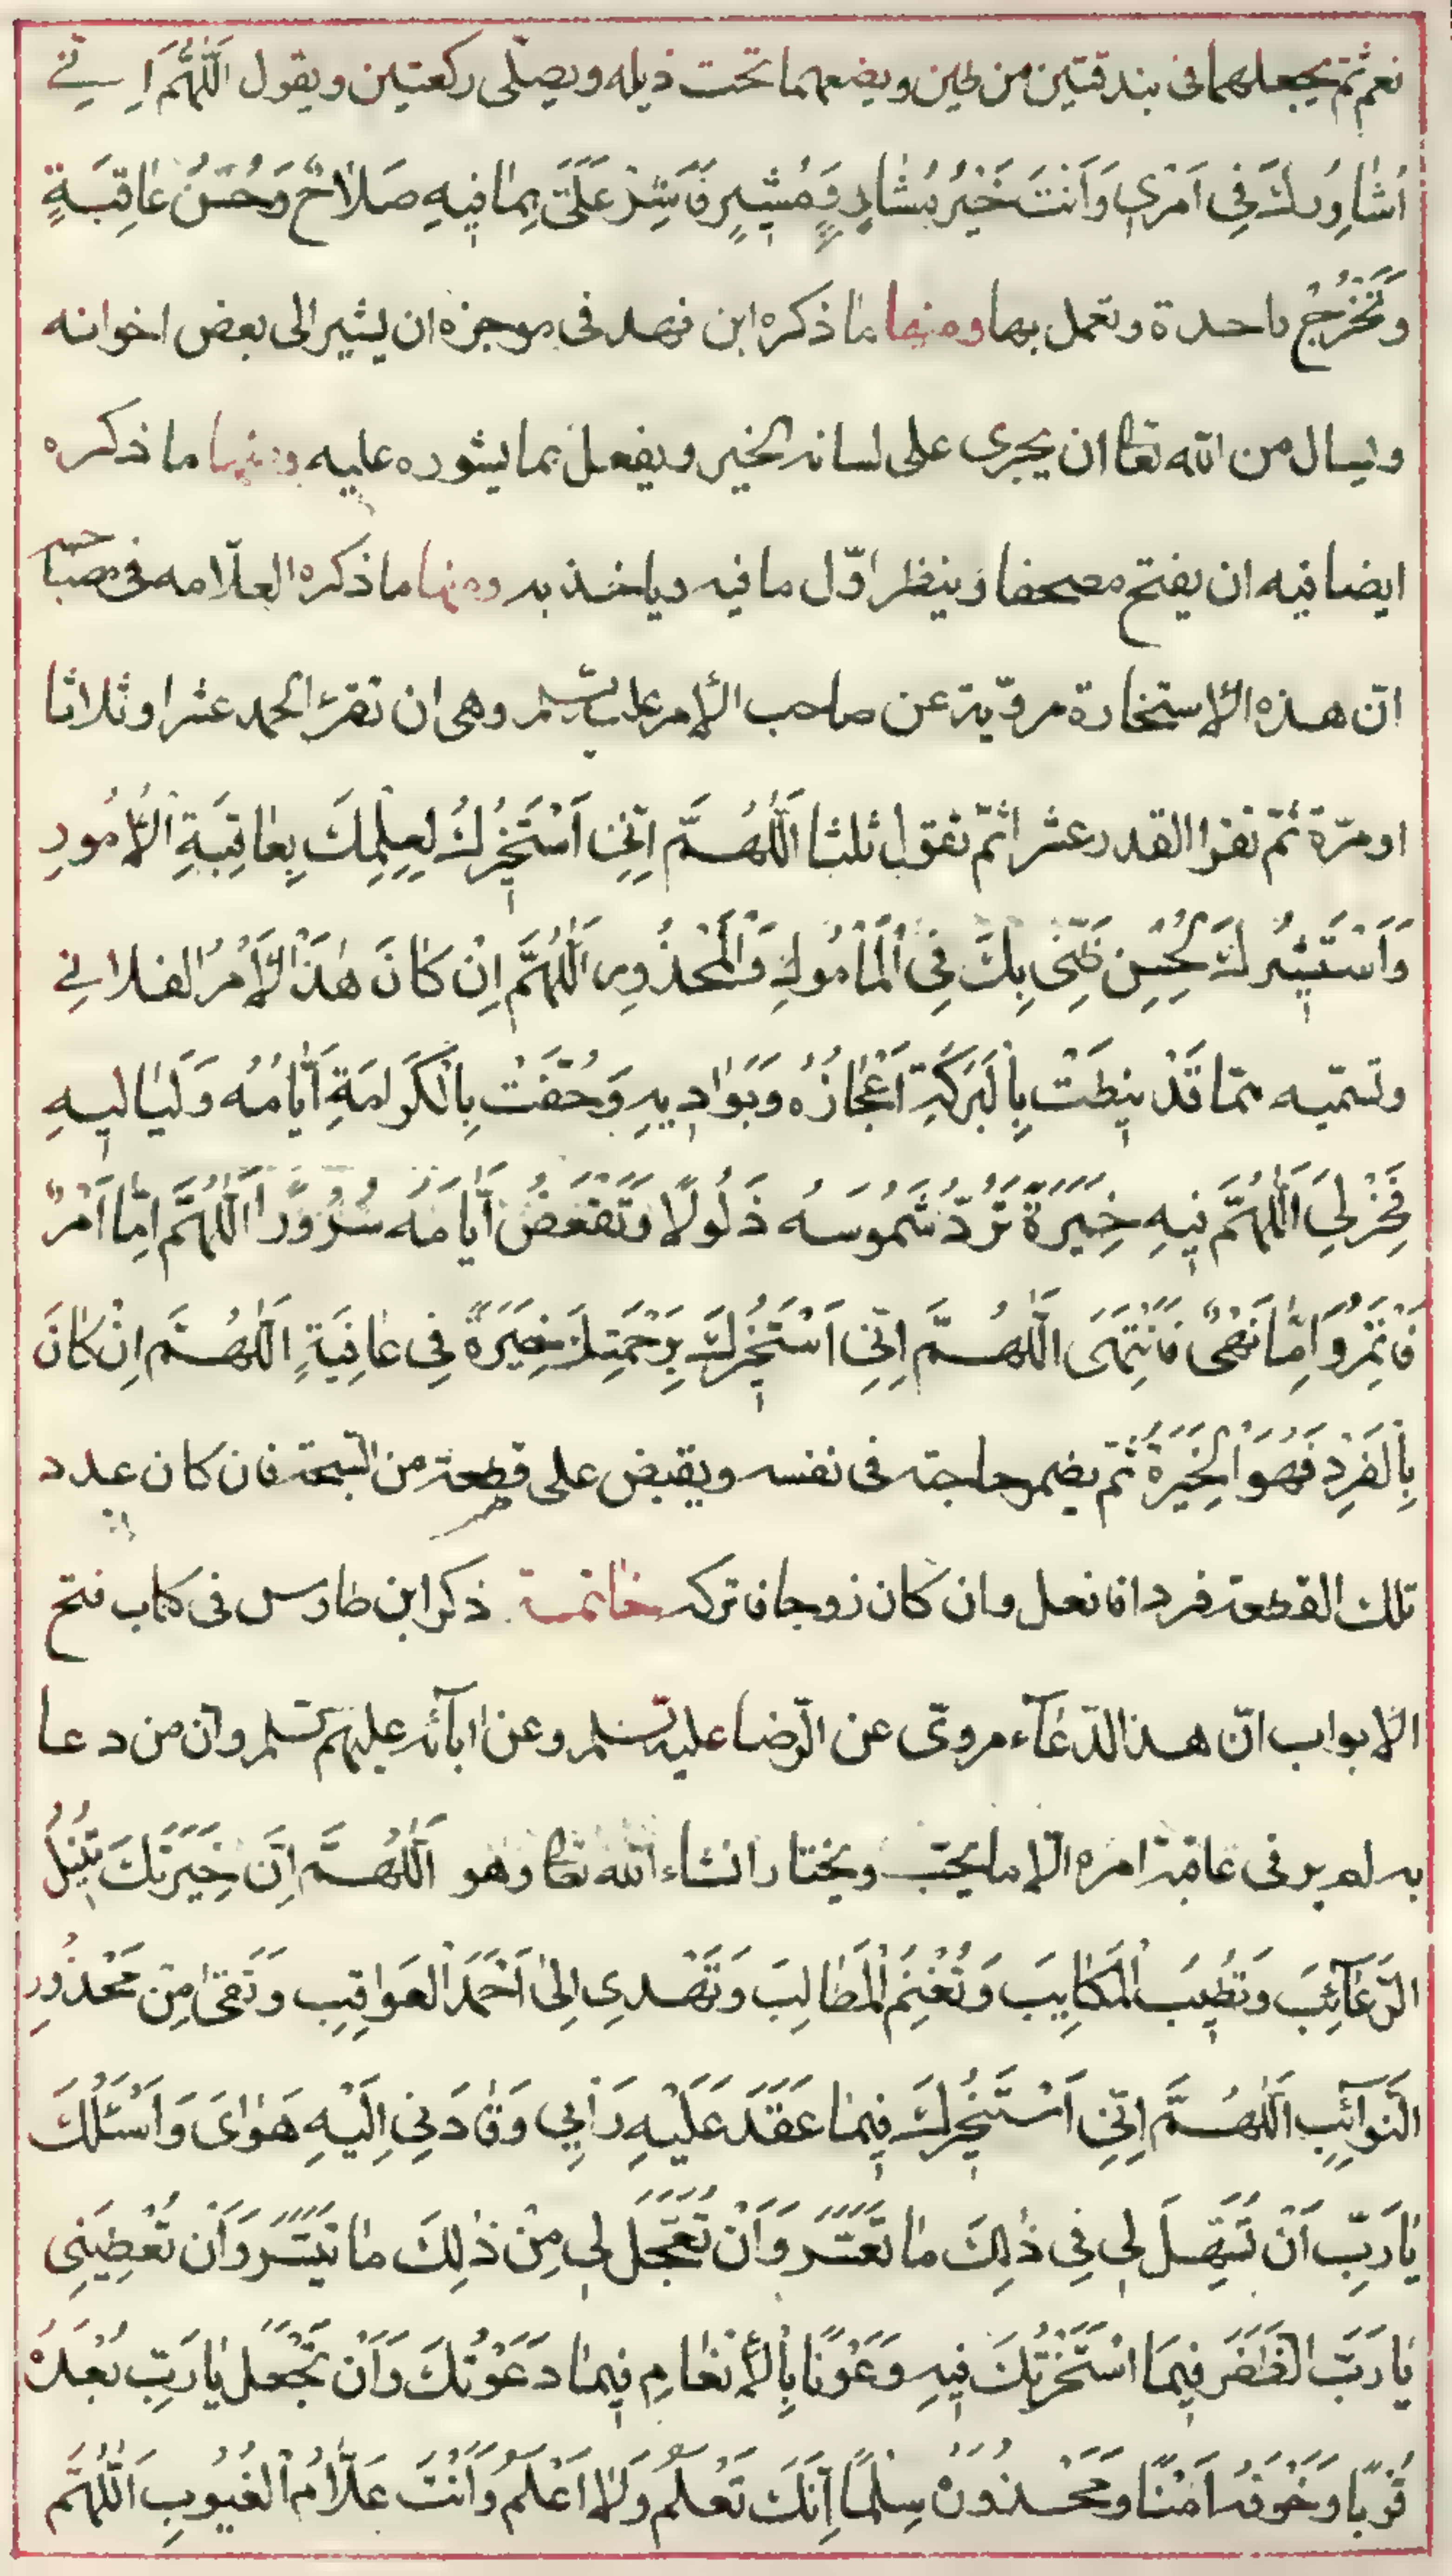 نعم ثمّ يجعلهما فى بندقتين من طين ويضعهما تحت ذيله ويصلّى ركعتين ويقول اَللّٰهُمَّ اِنّي
اُشٰاوِرُكَ فِى اَمْرِي وَاَنْتَ خَيْرُ مُسْتَشٰارٍ وَمُشيرٍ فَاَشِرْ عَلَيَّ بِمٰا فيهِ صَلاٰحٌ وَحُسْنُ عٰاقِبَةٍ
وَتُخْرِجُ واحدة وتعمل بها ومنها مٰا ذكره ابن فهد فى موجزه ان يشير الى بعض اخوانه
ويسال من الله تعا ان يجرى على لسانه الخير ويفعل بما يشوره عليه ومنها ما ذكره
ايضا فيه ان يفتح مصحفا وينظر اوّل ما فيه وياخذ به ومنها ما ذكره العلّامه فى مصباحه
انّ هذه الإستخارة مرويّة عن صاحب الأمر عليه السلم وهى ان تقرء الحمد عشرا وثلاثا
او مرّة ثمّ تقرا القدر عشرا ثمّ تقول ثلثا اَللّٰهُمَّ اِنّي اَسْتَخيرُكَ لِعِلْمِكَ بِعٰاقِبَةِ الْأُمُورِ
وَاَسْتَشيرُكَ لِحُسْنِ ظَنّي بِكَ فِى الْمَأْمُولِ وَالْمَحْذُورِ اَللّٰهُمَّ اِنْ كٰانَ هٰذَا الْأَمْرُ الفلانى
وتسمّيه ممّا قَدْ نيطَتْ بِالْبَرَكَةِ اَعْجٰازُهُ وَبَوٰاديهِ وَحُفَّتْ بِالْكَرٰامَةِ اَيّٰامُهُ وَلَيٰاليهِ
فَخِرْ لِيَ اَللّٰهُمَّ فيهِ خِيَرَةً تَرُدُّ شَمُوسَهُ ذَلُولًا وَتَقْعَضُ اَيّٰامَهُ سُرُورًا اَللّٰهُمَّ اِمّٰا اَمْرٌ
فَاَئْتَمِرُ وَاِمّٰا نَهْيٌ فَاَنْتَهى اَللّٰهُمَّ اِنّي اَسْتَخيرُكَ بِرَحْمَتِكَ خِيَرَةً فِى عٰافِيَةٍ اَللّٰهُمَّ اِنْ كٰانَ
بِالْفَرْدِ فَهُوَ الْخِيَرَةُ ثم يضمر حاجته فى نفسه ويقبض على قطعة من السبحة فان كان عدد
تلك القطعة فردا فافعل وان كان زوجا فاتركه خاتمة ذكر ابن طاوس فى كتاب فتح
الابواب انّ هذا الدّعآء مروىّ عن الرّضا عليه السلم وعن ابآئه عليهم السلم وانّ من دعا
به لم ير فى عاقبة امره الّا ما يحبّ ويختار انشاء الله تعا وهو اَللّٰهُمَّ اِنَّ خِيَرَتَكَ تُنيلُ
الرَّغٰآئِبَ وَتُطيبُ الْمَكٰاسِبَ وَتُغْنِمُ الْمَطٰالِبَ وَتَهْدِى اِلىٰ اَحْمَدِ الْعَوٰاقِبِ وَتَقى مِنْ مَحْذُورِ
النَّوٰآئِبِ اَللّٰهُمَّ اِنّي اَسْتَخيرُكَ فيمٰا عَقَدَ عَلَيْهِ رَأْيي وَقٰادَني اِلَيْهِ هَوٰاىَ وَاَسْئَلُكَ
يٰا رَبِّ اَنْ تُسَهِّلَ لي فِى ذٰلِكَ مٰا تَعَسَّرَ وَاَنْ تُعَجِّلَ لي مِنْ ذٰلِكَ مٰا تَيَسَّرَ وَاَنْ تُعْطِيَنِى
يٰا رَبِّ الظَّفَرَ فيمَا اسْتَخَرْتُكَ فيهِ وَعَوْنًا بِالْأِنْعٰامِ فيمٰا دَعَوْتُكَ وَاَنْ تَجْعَلَ يٰا رَبِّ بُعْدَهُ
قُرْبًا وَخَوْفَهُ اَمْنًا وَمَحْذُورَهُ سِلْمًا اِنَّكَ تَعْلَمُ وَلٰا اَعْلَمُ وَاَنْتَ عَلّٰامُ الْغُيُوبِ اَللّٰهُمَّ